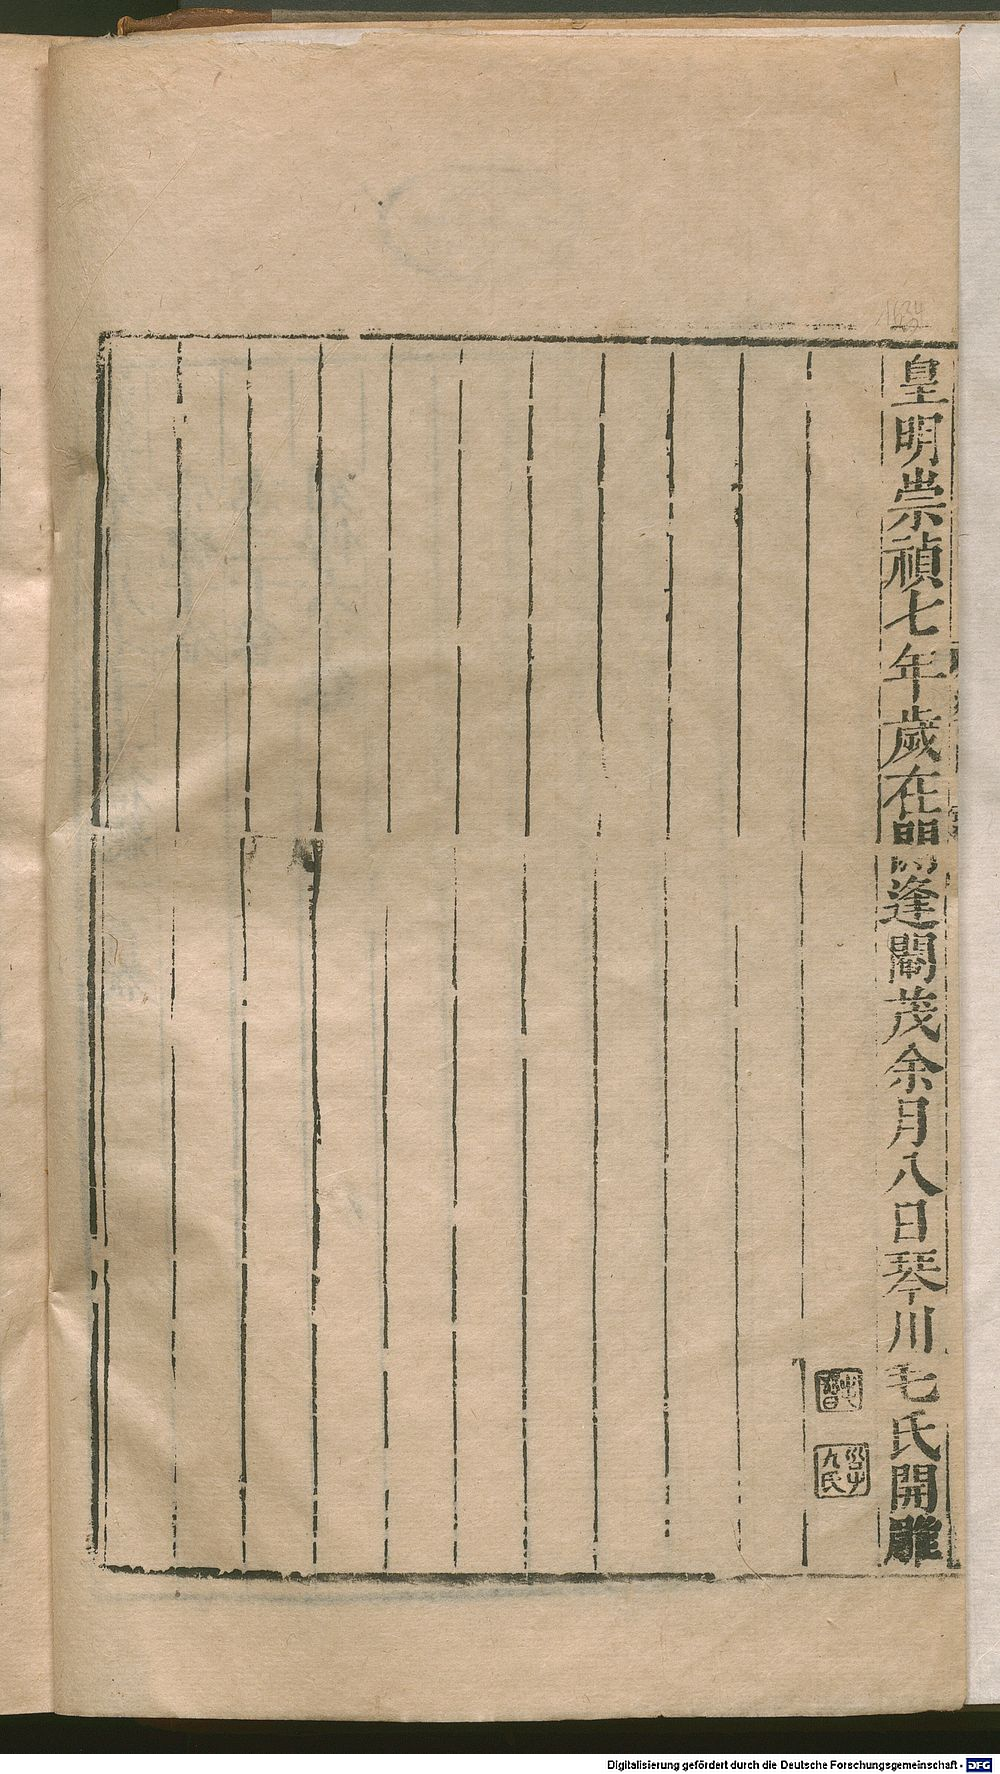 皇明崇禎七年歲在閼逢閹茂余月八日琴川毛氏開雕
1634
Digitalisierung gefördert durch die Deutsche Forschungsgemeinschaft - DFG